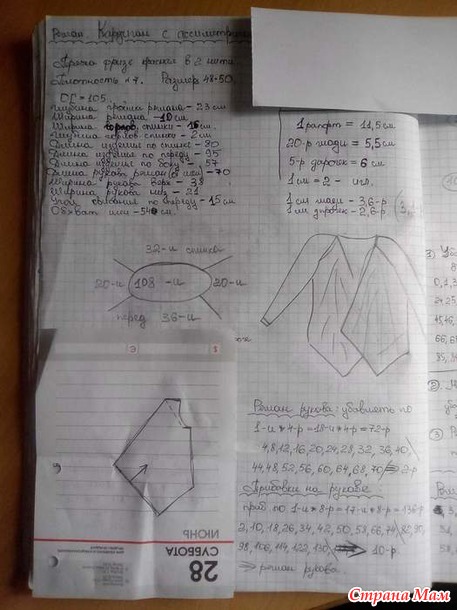 Реглан. Кардиган с ассиметричн
Пряжа фризе красная в 2 нити
Плотность №7. Размер 48-50.
ОГ = 105.
Глубина пройма реглана - 23 см
Ширина реглана - 10 см
Ширина горлов. спинки - 16 см.
Глубина горлов. спинки - 2 см
Длина изделия по спинке - 80
Длина изделия по переду - 95
Длина изделия по боку - 57
Длина рукава реглан (от шеи) - 70
Ширина рукава верх - 38
Ширина рукава низ - 21
по переду - 15 см
Обхват шеи - 54 см
1 рапорт = 11,5 см
20-р глади = 5,5 см
5-р дырочек = 6 см
1 см = 2 - игл.
1 см глади - 3,6-р
1 см дырочек - 2,6-р.
32-и спинка
20-и
108 -и
20-и
перед 36-и
Реглан рукова: убавлять по
1-и * 4-р = 18-и * 4-р = 72-р
4,8,12,16,20,24,28,32,36,40,
44,48,52,56,60,64,68,70 => 2-р
Прибавки на рукаве
приб. по 1-и * 8-р = 17-и * 8-р = 136-р
2,10,18,26,34,42,50,58,66,74,82,90,
98,106,114,122,130, => 10-р
=> реглан рукова.
28
СУББОТА
ИЮНЬ
9
Страна Мам